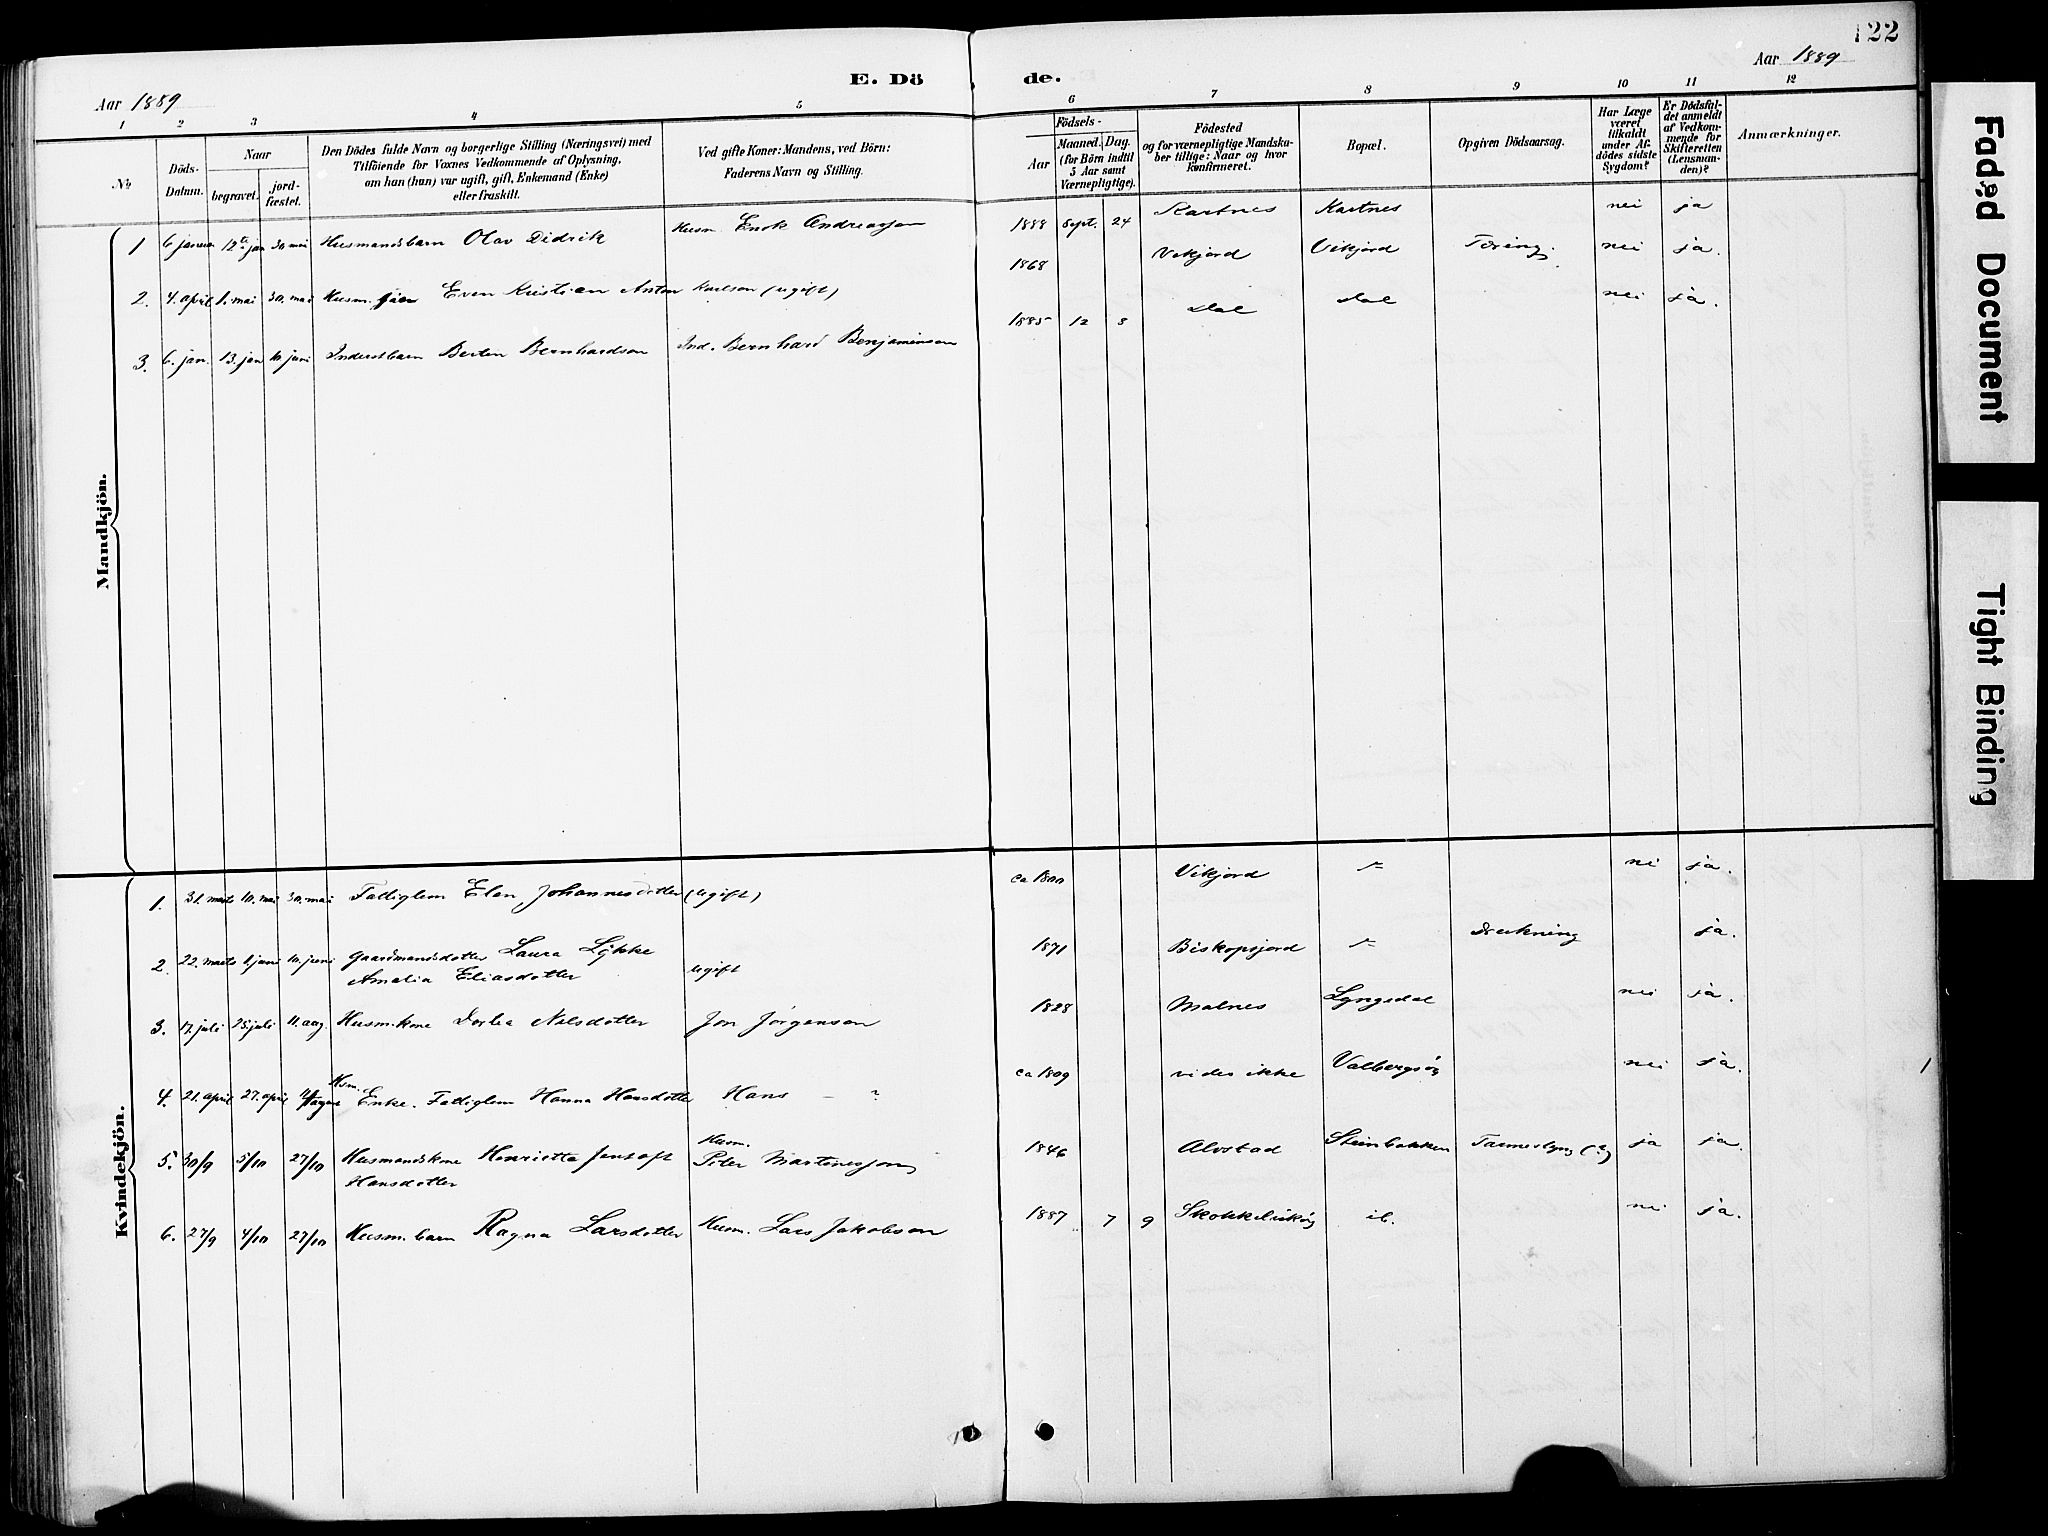 122
Aar 1889
E. Dö de.
Aar 1889
1 2 3 4 5 6 7 8 9 10 11 12
No
Döds-Datum.
Naar
begravet.
jord-fæstet.
Den Dödes fulde Navn og borgerlige Stilling (Næringsvei) med
Tilföiende for Voxnes Vedkommende af Oplysning,
om han (hun) var ugift, gift, Enkemand (Enke)
eller fraskilt.
Ved gifte Koner: Mandens, ved Börn:
Faderens Navn og Stilling.
Födsels-
Aar
Maaned. Dag.
(for Börn indtil
5 Aar samt
Værnepligtige).
Födested
og for værnepligtige Mandska-
ber tillige: Naar og hvor
konfirmeret.
Bopæl.
Opgiven Dödsaarsag.
Har Læge
været
tilkaldt
under Af-
dödes sidste
Sygdom?
Er Dödsfal-
det anmeldt
af Vedkom-
mende for
Skifteretten
(Lensman-
den)?
Anmærkninger.
Mandkjön.
1 6 januar 12te jan 30. mai Husmandsbarn Olav Didrik Husm. Enok Andreassen 1888 Sept. 24 Kartnes Kartnes nei ja
2. 4. april 1. mai 30. mai Husm. Even Kristian Anton Karlson (ugift) 1868 Vikjord Vikjord Tæring. nei ja.
3. 6. jan. 13. jan 10 juni Inderstbarn Berten Bernhardson Ind. Bernhard Benjaminsen 1885 12 8 Dal Dal nei ja.
Kvindekjön.
1. 31. marts 10. mai 30. mai Fattiglem Elen Johannesdotter (ugift) ca 1800 Vikjord nei ja.
2. 22. marts 1. juni 10. juni gaardmandsdotter Laura Lykke
Amalia Eliasdotter ugift 1871 Biskopsjord Drukning ja.
3. 17. juli 25. juli 11. aug Husm.kone Dortea Nilsdotter Jon Jørgensen 1828 Malnes Lyngedal nei ja.
4. 21. april 27. april Hsm. Enke. Fattiglem Hanna Hansdotter Hans — ? ca 1809 vides ikke Valbergsøy nei ja.
5. 30/9 5/10 27/10 Husmandskone Henrietta Jentoft
Hansdotter Husm. Peter Martinussen 1846 Alvstad Steinbakken (?) ja ja.
6. 27/9 4/10 27/10 Husm.barn Ragna Larsdotter Husm. Lars Jakobson 1887 7 9 ib. nei ja.
Faded Document
Tight Binding